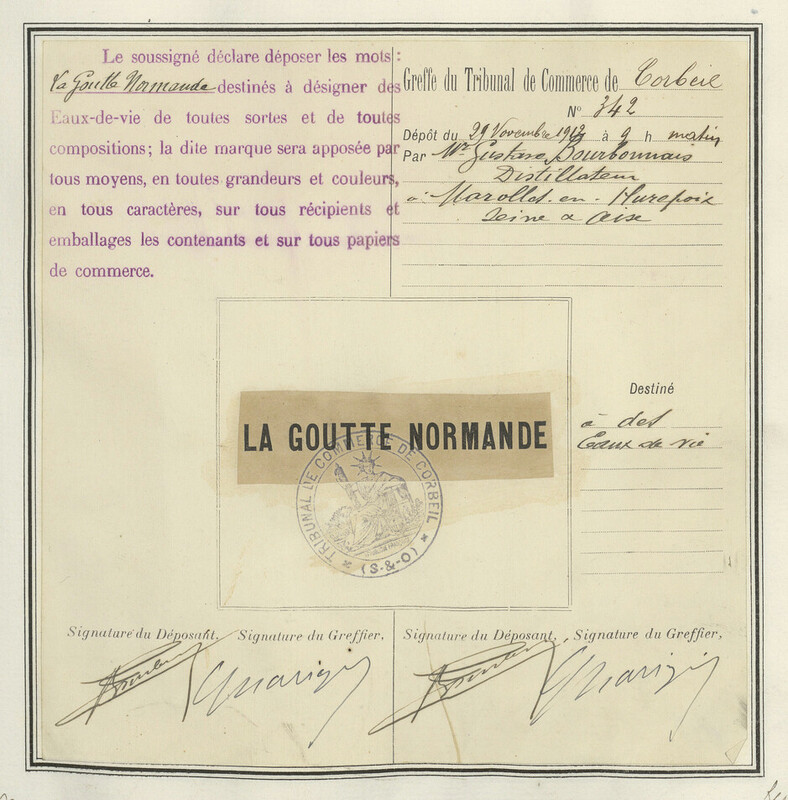 Le soussigné déclare déposer les mots :
La Goutte Normande destinés à désigner des
Eaux-de-vie de toutes sortes et de toutes
compositions; la dite marque sera apposée par
tous moyens, en toutes grandeurs et couleurs,
en tous caractères, sur tous récipients et
emballages les contenants et sur tous papiers
de commerce.
Greffe du Tribunal de Commerce de Corbeil
N° 342
Dépôt du 29 Novembre 1912 à 9 h matin
Par Mr Gustave Bourbonnais
Distillateur
à Marolles-en-Hurepoix
Seine & Oise
LA GOUTTE NORMANDE
TRIBUNAL DE COMMERCE DE CORBEIL
(S-&-O)
Destiné
à des
Eaux de vie
Signature du Déposant, Signature du Greffier,
Signature du Déposant, Signature du Greffier,